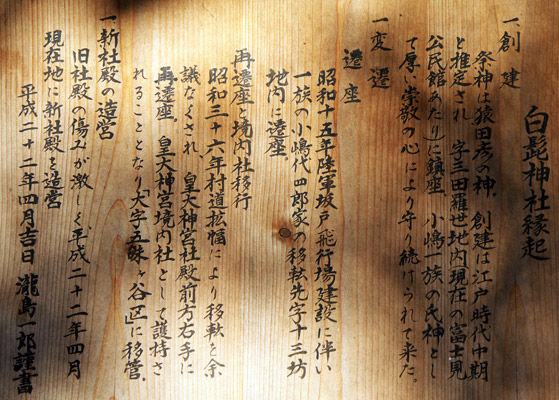 白髭神社縁起
一、創建
祭神は猿田彦の神、創建は江戸時代中期
と推定され、字三田羅世地内現在の富士見
公民館あたりに鎮座、小嶋一族の氏神とし
て厚い崇敬の心により守り続けられて来た。
一、変遷
遷座
昭和十五年陸軍坂戸飛行場建設に伴い
一族の小嶋代四郎家の移転先字十三坊
地内に遷座、
再遷座と境内社移行
昭和三十六年村道拡幅により移転を余
議なくされ、皇大神宮社殿前方右手に
再遷座、皇大神宮境内社として護持さ
れることとなり「大字五味ヶ谷区」に移管、
一、新社殿の造営
旧社殿の傷みが激しく、平成二十二年四月
現在地に新社殿を造営
平成二十二年四月吉日 瀧島一郎謹書